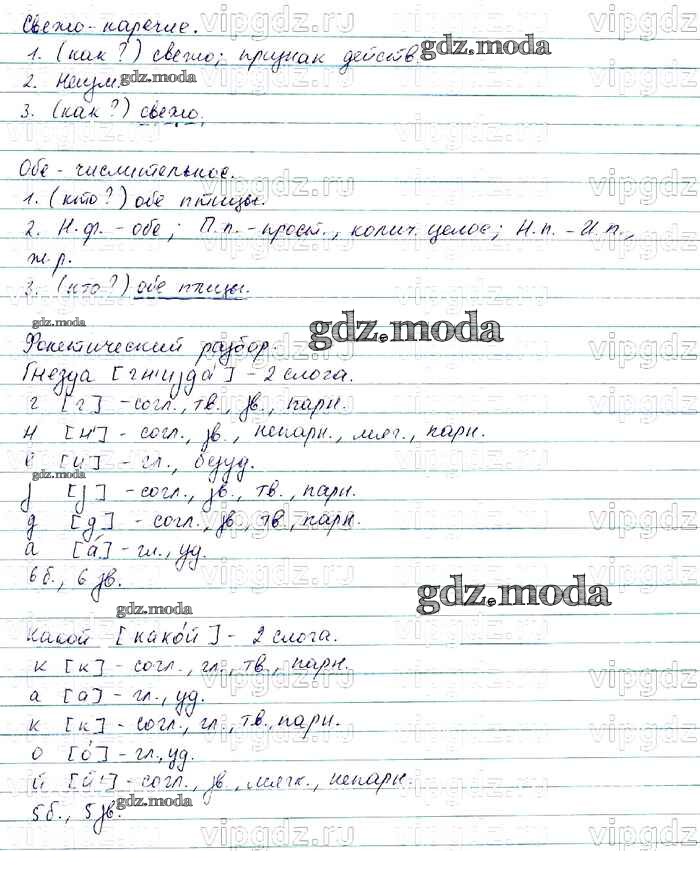 Свежо - наречие.
1. (как?) свежо; признак действ.
2. Неизм.
3. (как?) свежо.
Обе - числительное.
1. (кто?) обе птицы.
2. Н.ф. - обе; П.п. - прост., колич. целое; Н.п. - И.п.,
ж.р.
3. (кто?) обе птицы.
Фонетический разбор.
Гнезда [гн'изда́] - 2 слога.
г [г] - согл., тв., зв., парн.
н [н'] - согл., зв., непарн., мяг., парн.
е [и] - гл., безуд.
з [з] - согл., зв., тв., парн.
д [д] - согл., зв., тв., парн.
а [а́] - гл., уд.
6 б., 6 зв.
Какой [како́й'] - 2 слога.
к [к] - согл., гл., тв., парн.
а [а] - гл., уд.
к [к] - согл., гл., тв., парн.
о [о́] - гл., уд.
й [й'] - согл., зв., мягк., непарн.
5 б., 5 зв.
gdz.moda
vipgdz.ru